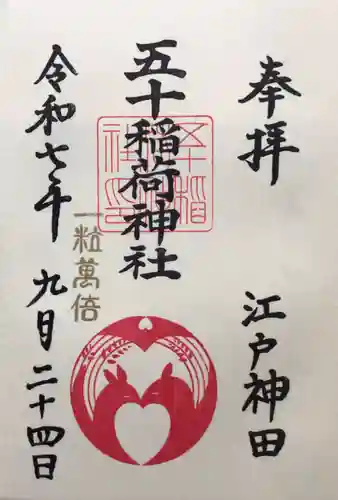 奉拝
江戸神田
五十稲荷神社
一粒萬倍
令和七年
九月二十四日